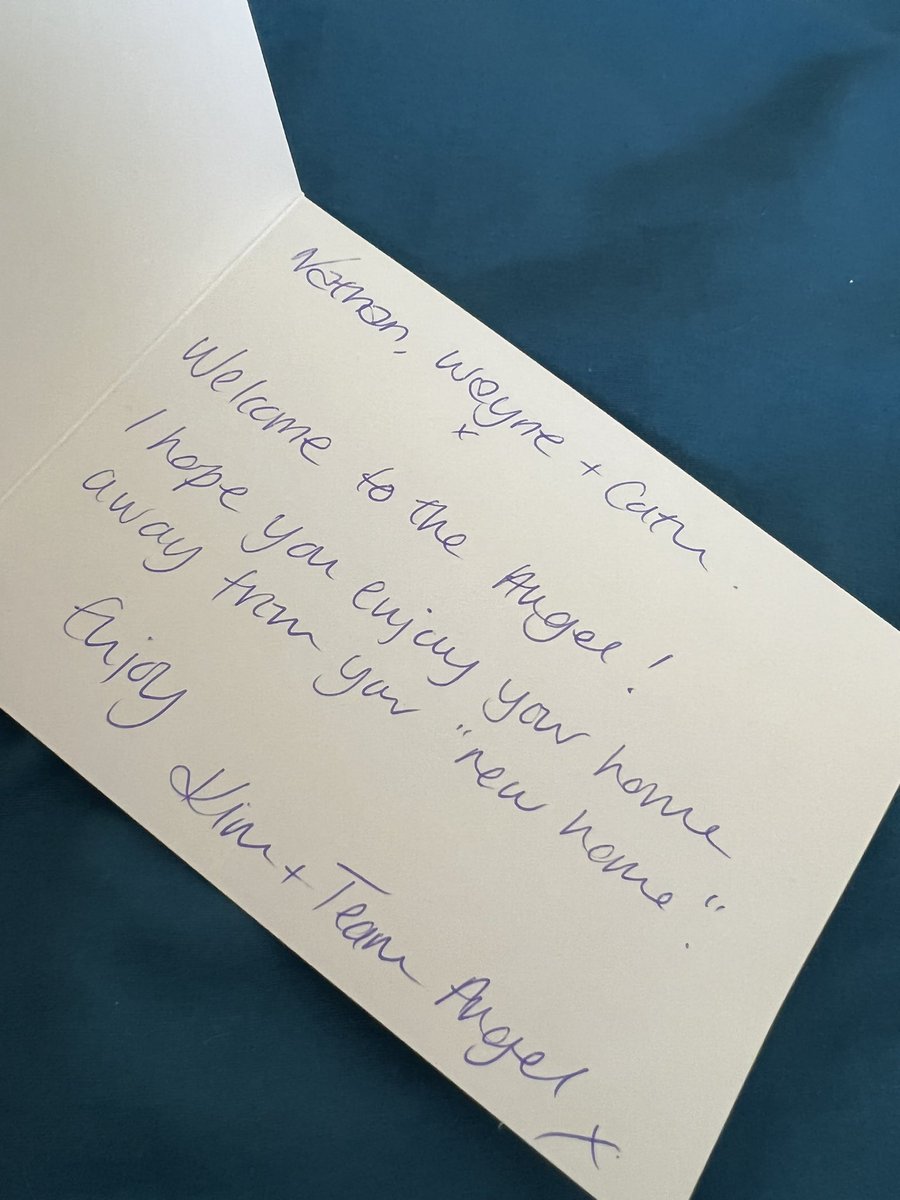 Nathan, Wayne + Cath.
x
Welcome to the Angel!
I hope you enjoy your home
away from your "new home".
Enjoy
Kim + Team Angel
x